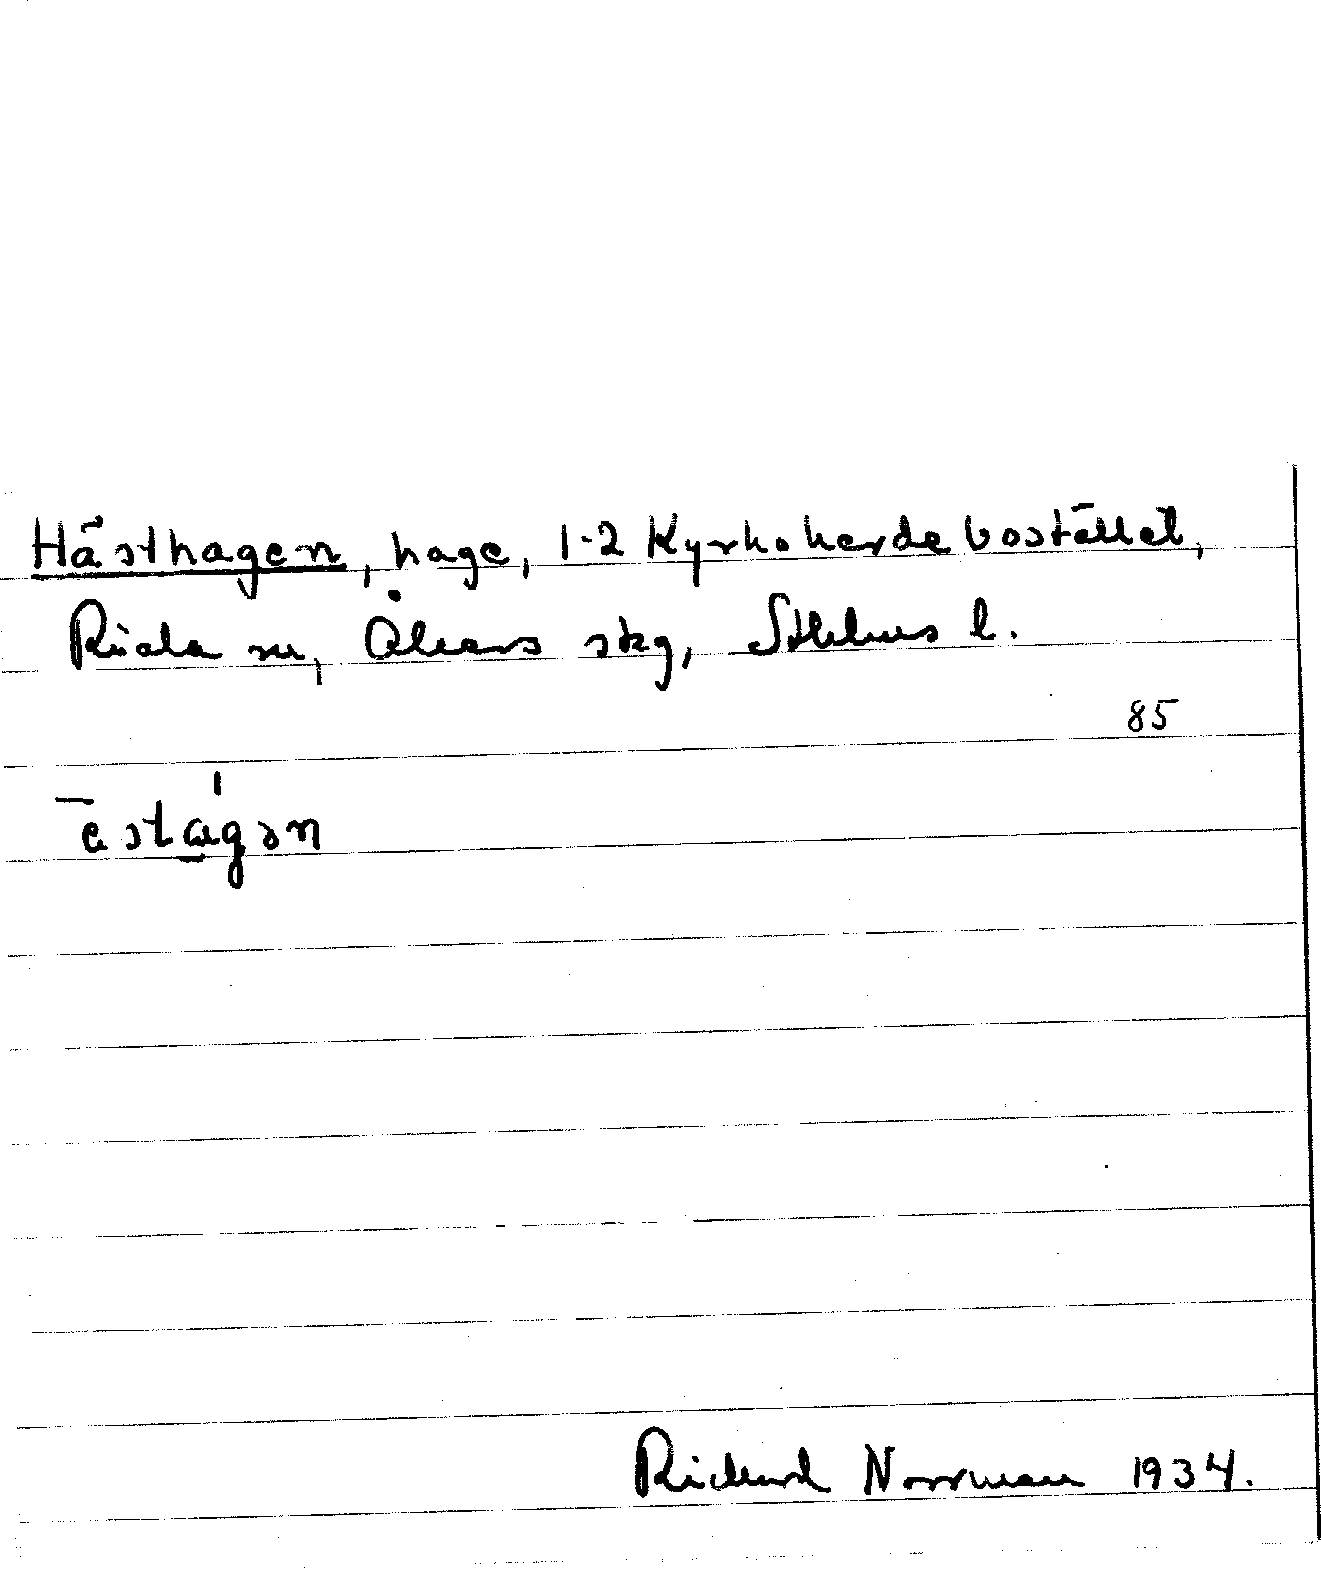 Hästhagen, hage, 1-2 Kyrkoherdebostället,
Riala sn, Åkers skg, Sthlms l.
85
Richard Norrman 1934.